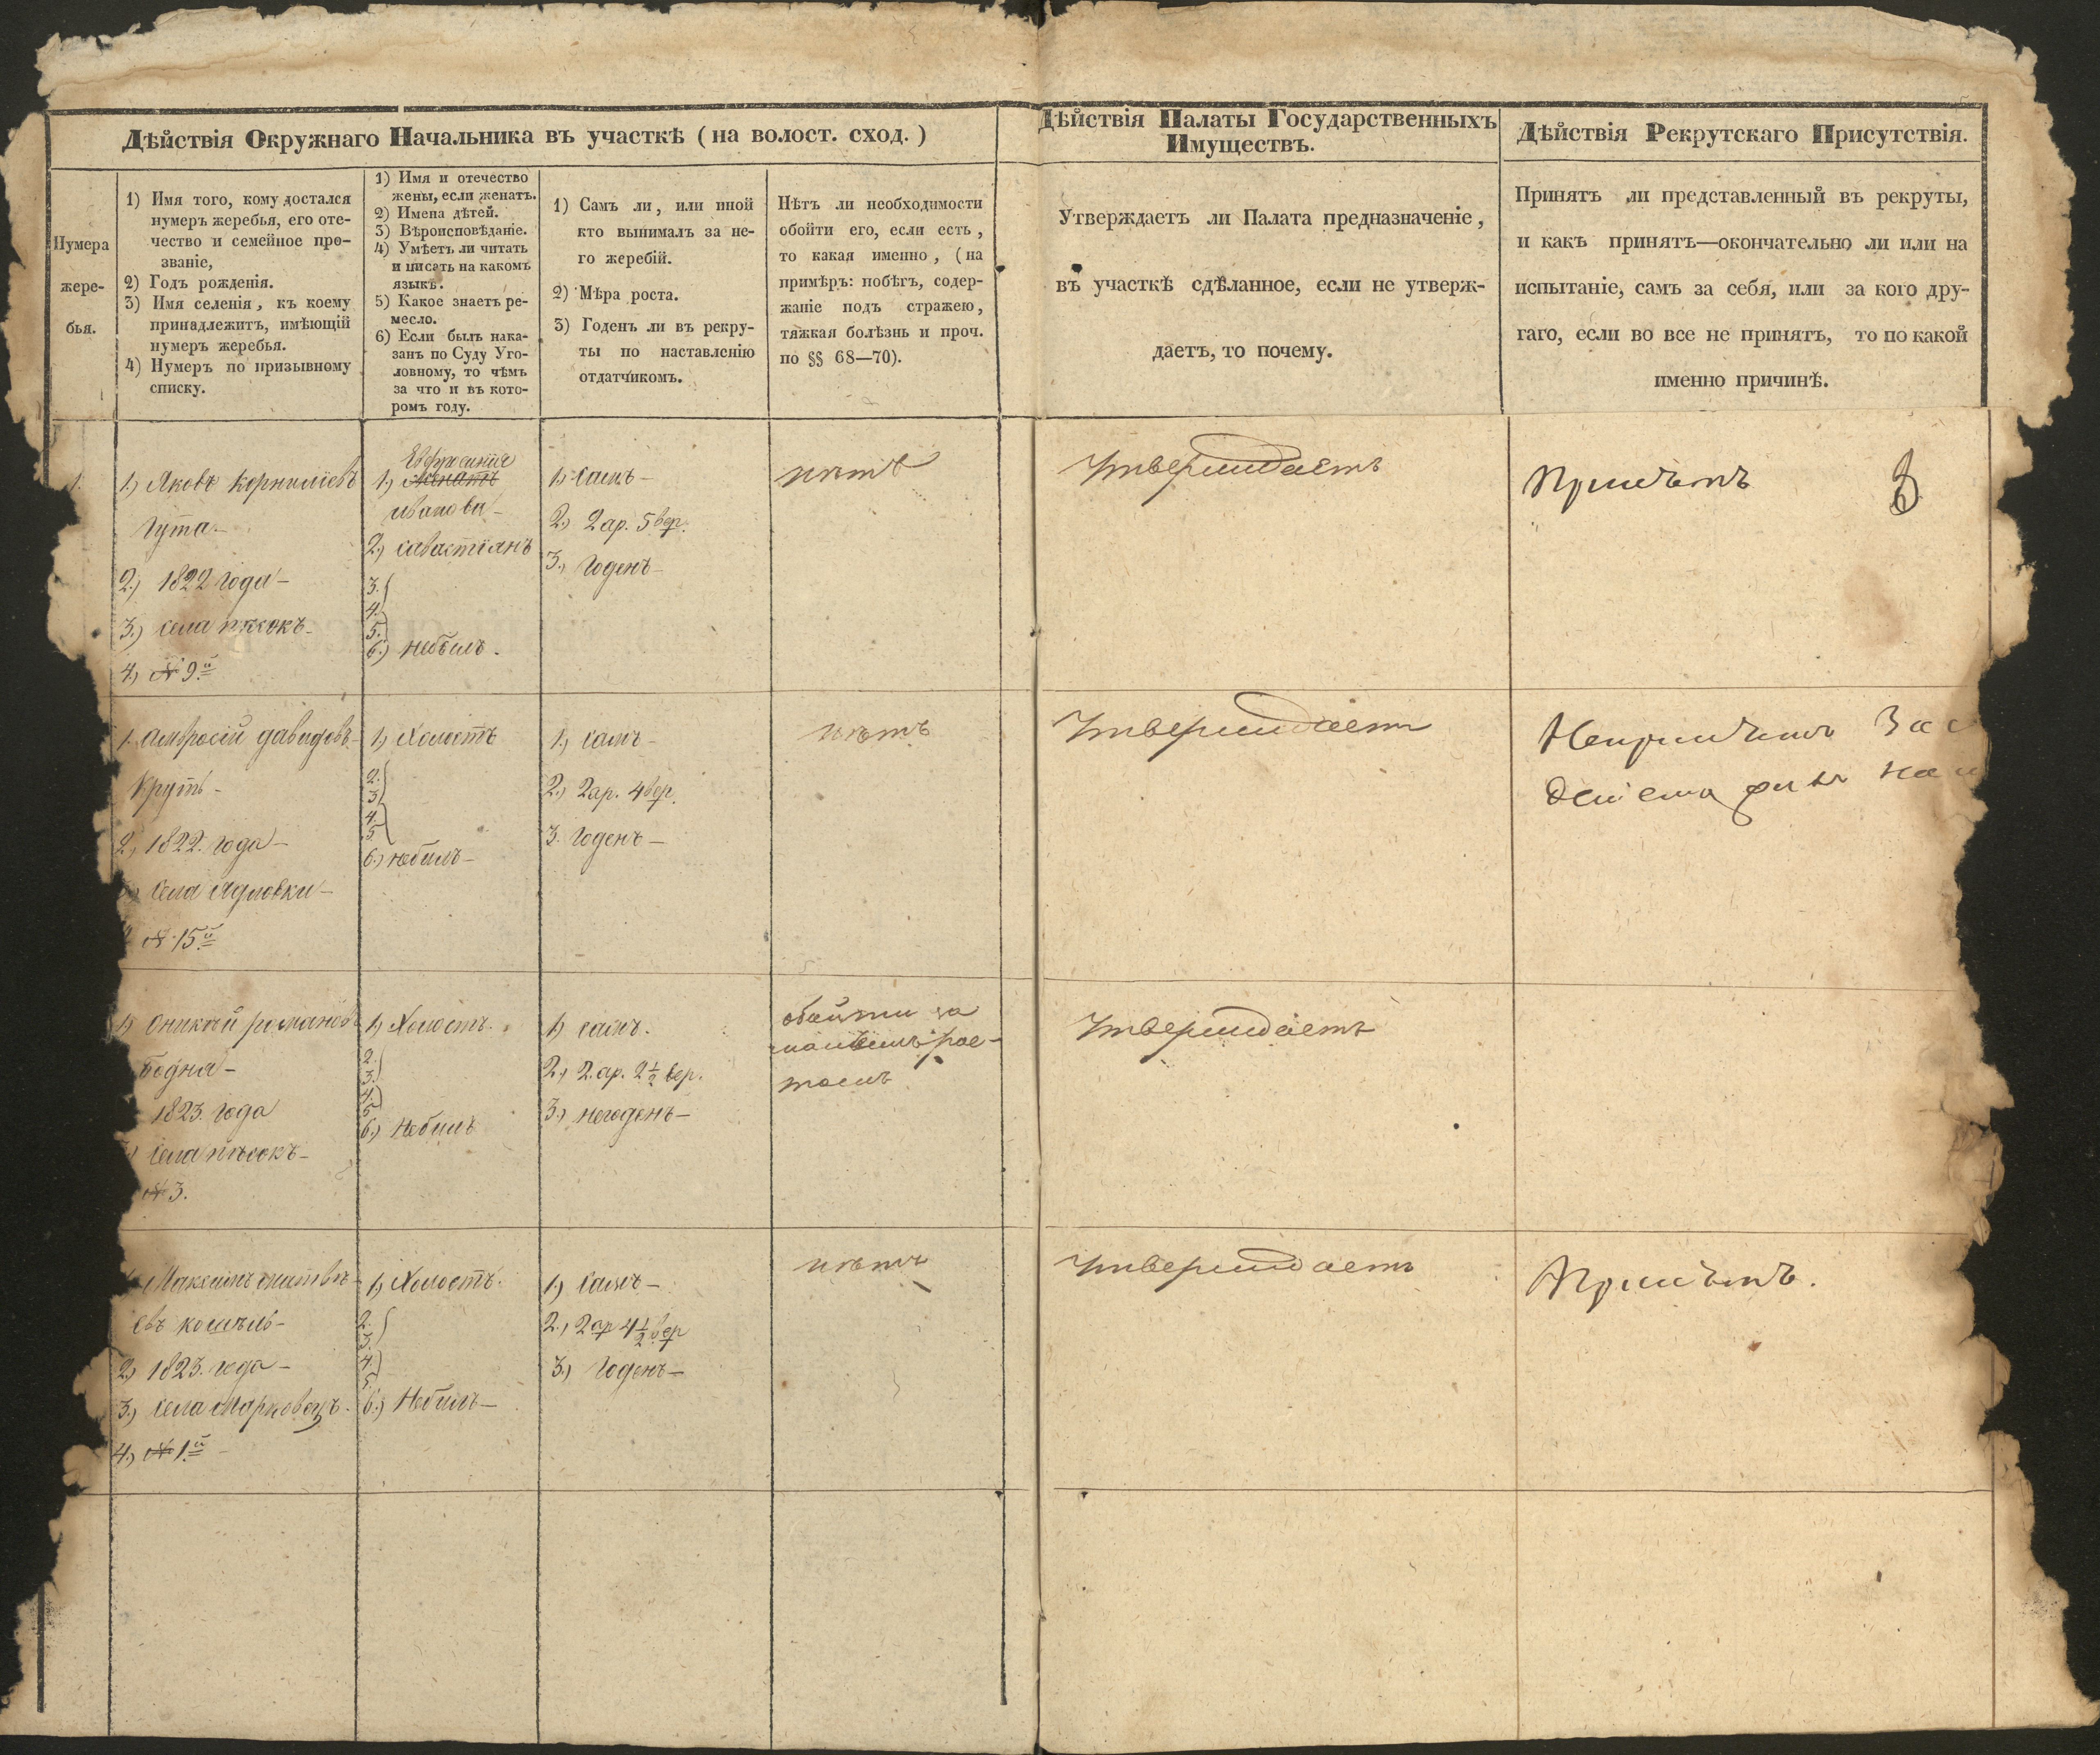 Дѣйствія Окружнаго Начальника въ участкѣ (на волост. сход.)
Дѣйствія Палаты Государственныхъ
Имуществъ.
Дѣйствія Рекрутскаго Присутствія.
Нумера
жере-
бья.
1) Имя того, кому достался
нумеръ жеребья, его оте-
чество и семейное про-
званіе,
2) Годъ рожденія.
3) Имя селенія, къ коему
принадлежитъ, имѣющій
нумеръ жеребья.
4) Нумеръ по призывному
списку.
1) Имя и отечество
жены, если женатъ.
2) Имена дѣтей.
3) Вѣроисповѣданіе.
4) Умѣетъ ли читать
и писать на какомъ
языкѣ.
5) Какое знаетъ ре-
месло.
6) Если былъ нака-
занъ по Суду Уго-
ловному, то чѣмъ
за что и въ кото-
ромъ году.
1) Самъ ли, или иной
кто вынималъ за не-
го жеребій.
2) Мѣра роста.
3) Годенъ ли въ рекру-
ты по наставленію
отдатчикомъ.
Нѣтъ ли необходимости
обойти его, если есть,
то какая именно, (на
примѣръ: побѣгъ, содер-
жаніе подъ стражею,
тяжкая болѣзнь и проч.
по §§ 68—70).
Утверждаетъ ли Палата предназначеніе,
въ участкѣ сдѣланное, если не утверж-
даетъ, то почему.
Принятъ ли представленный въ рекруты,
и какъ принятъ—окончательно ли или на
испытаніе, самъ за себя, или за кого дру-
гаго, если во все не принятъ, то по какой
именно причинѣ.
1.
1.) Яковъ Корниліевъ
Гута-
2.) 1822 года-
3.) села пѣсокъ-
4.) № 9.й
Евфросинія
1.) Женатъ
иванова-
2.) савастіянъ
3.
4.
5.
6.) небылъ.
1.) самъ-
2.) 2 ар. 5 вер.
3.) Годенъ-
нѣтъ
Утверждаетъ
Принятъ
1. амвросій давидовъ-
Крутъ-
2.) 1822. года-
села
№ 15.й
1.) Холостъ
2.
3.
4.
5.
6.) небылъ-
1.) самъ-
2.) 2 ар. 4 вер.
3. Годенъ-
нѣтъ
Утверждаетъ
Непринятъ
1) романовъ
бодна-
1823. года
села пѣсокъ-
№ 3.
1.) Холостъ.
2.
3.
4.
5.
6.) Небылъ
1.) самъ.
2.) 2. ар. 2 1/2 вер.
3.) негоденъ-
обойти за
малымъ рос-
томъ
Утверждаетъ
Максимъ матвѣ-
евъ кошель-
2.) 1823. года-
3.) села Марковецъ.
4.) № 1.й
1.) Холостъ.
2.
3.
4.
5.
6.) Небылъ-
1.) самъ-
2.) 2 ар 4 1/2 вер
3.) Годенъ-
нѣтъ
Утверждаетъ
Принятъ.